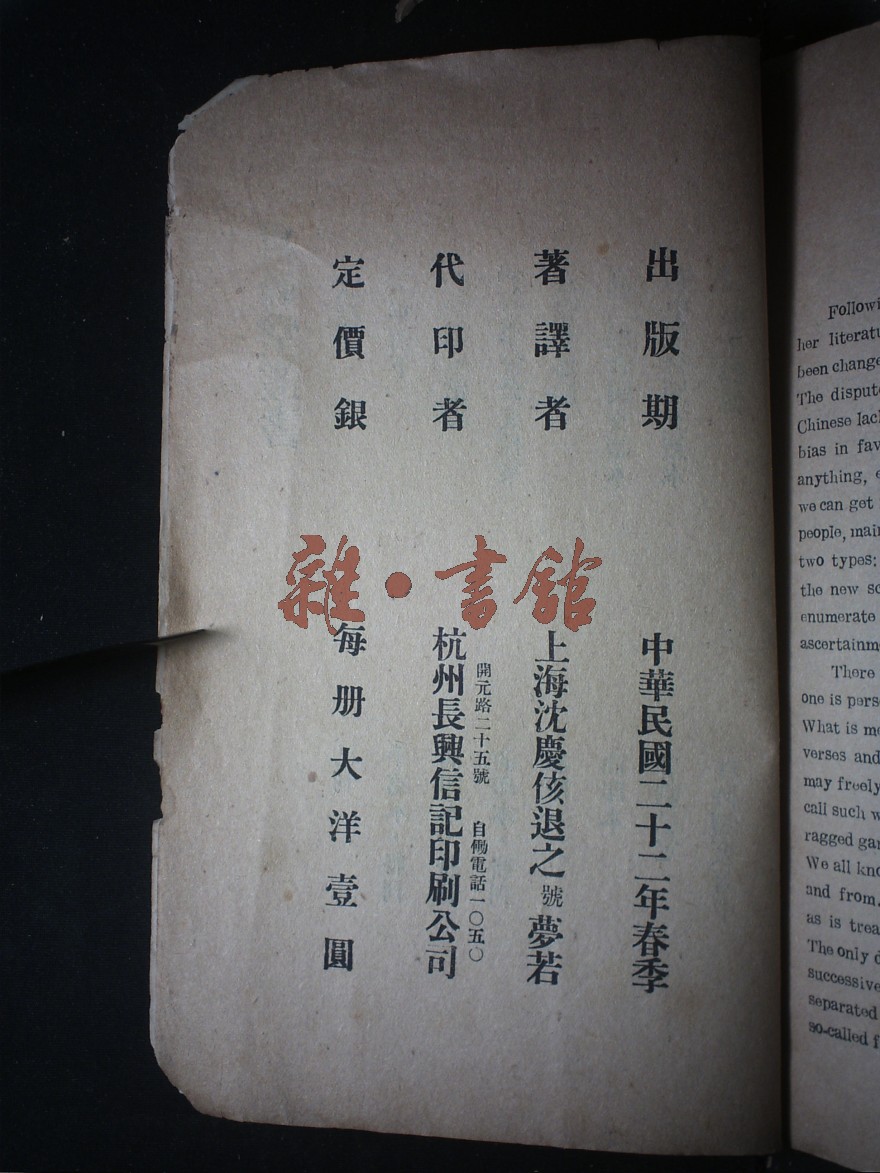 出版期 中華民國二十二年春季
著譯者 上海沈慶侅退之號夢若
代印者 杭州長興信記印刷公司
開元路二十五號 自働電話一〇五〇
定價銀 每册大洋壹圓
雜·書館
Followi
her literatu
been change
The dispute
Chinese lac
bias in fav
anything, e
we can get
people, mai
two types:
the new sc
enumerate
ascertainm
There
one is pers
What is me
verses and
may freely
call such w
ragged gar
We all kno
and from,
as is trea
The only d
successive
separated
so-called f